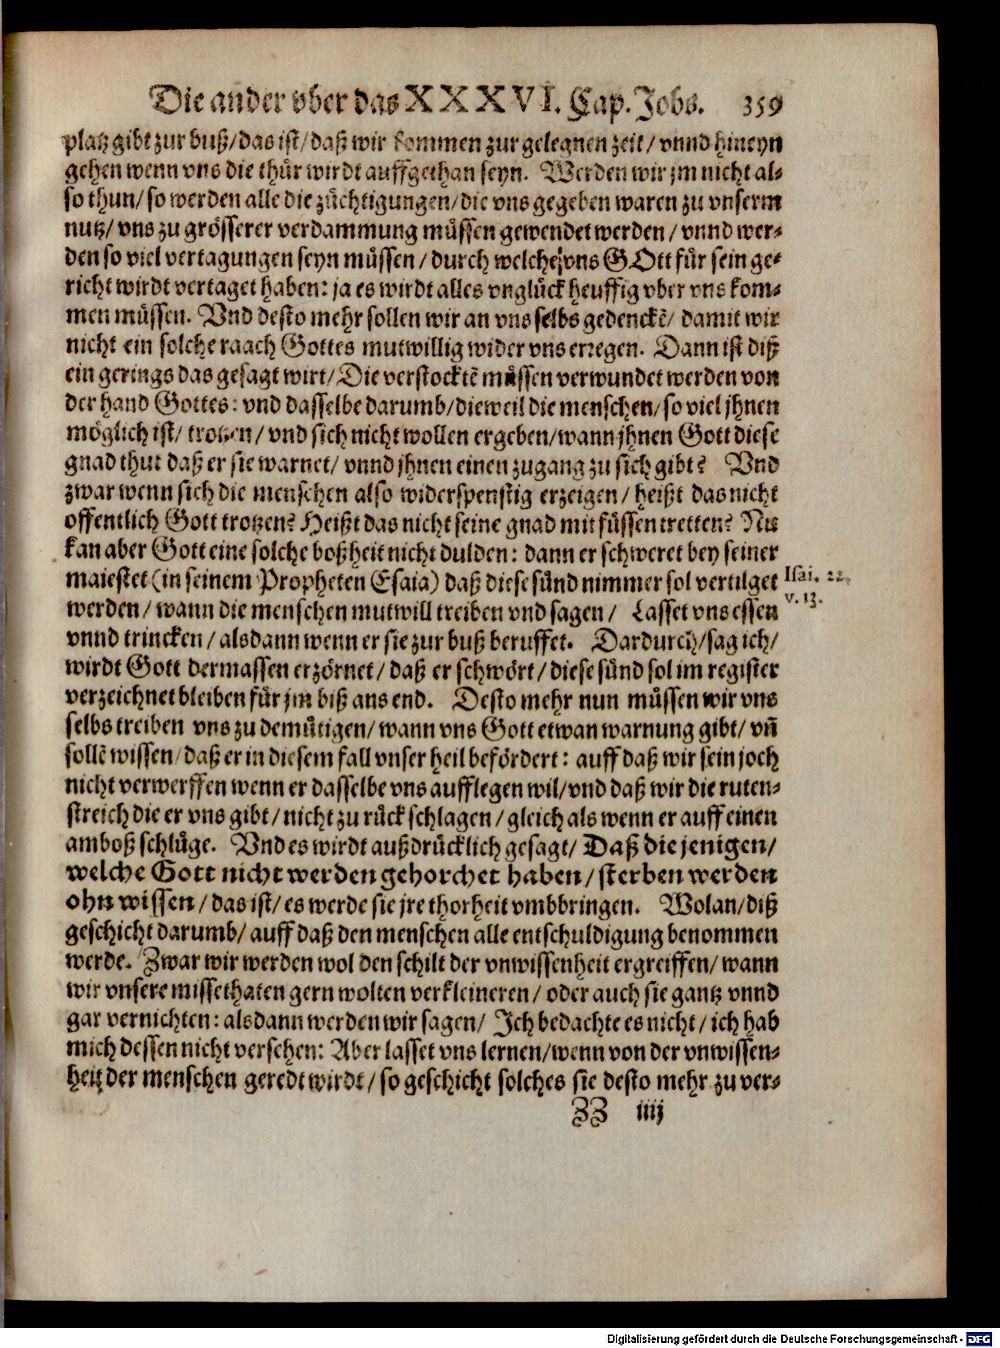 Die ander vber das XXXVI. Cap. Jobs. 359
platz gibt zur buß/das ist/daß wir kommen zur gelegnen zeit/vnnd hineyn
gehen wenn vns die thür wirdt auffgethan seyn. Werden wir jm nicht al-
so thun/so werden alle die züchtigungen/die vns gegeben waren zu vnserm
nutz/vns zu grösserer verdammung müssen gewendet werden/vnnd wer-
den so viel vertagungen seyn müssen/durch welche vns GOtt für sein ge-
richt wirdt vertaget haben: ja es wirdt alles vnglück heuffig vber vns kom-
men müssen. Vnd desto mehr sollen wir an vns selbs gedenckē/damit wir
nicht ein solche raach Gottes mutwillig wider vns erregen. Dann ist diß
ein gerings das gesagt wirt/Die verstocktē müssen verwundet werden von
der hand Gottes: vnd dasselbe darumb/dieweil die menschen/so viel jhnen
möglich ist/trotzen/vnd sich nicht wollen ergeben/wann jhnen Gott diese
gnad thut daß er sie warnet/vnnd jhnen einen zugang zu sich gibt? Vnd
zwar wenn sich die menschen also widerspenstig erzeigen/heißt das nicht
offentlich Gott trotzen? Heißt das nicht seine gnad mit füssen tretten? Nu
kan aber Gott eine solche boßheit nicht dulden: dann er schweret bey seiner
maiestet (in seinem Propheten Esaia) daß diese sünd nimmer sol vertilget
Isai. 22.
v. 13.
werden/wann die menschen mutwill treiben vnd sagen/ Lasset vns essen
vnnd trincken/alsdann wenn er sie zur buß beruffet. Dardurch/sag ich/
wirdt Gott dermassen erzörnet/daß er schwört/diese sünd sol im register
verzeichnet bleiben für jm biß ans end. Desto mehr nun müssen wir vns
selbs treiben vns zu demütigen/wann vns Gott etwan warnung gibt/vñ
sollē wissen/daß er in diesem fall vnser heil befördert: auff daß wir sein joch
nicht verwerffen wenn er dasselbe vns aufflegen wil/vnd daß wir die ruten-
streich die er vns gibt/nicht zu rück schlagen/gleich als wenn er auff einen
amboß schlüge. Vnd es wirdt außdrücklich gesagt/Daß die jenigen/
welche Gott nicht werden gehorchet haben/sterben werden
ohn wissen/das ist/es werde sie jre thorheit vmbbringen. Wolan/diß
geschicht darumb/auff daß den menschen alle entschuldigung benommen
werde. Zwar wir werden wol den schilt der vnwissenheit ergreiffen/wann
wir vnsere missethaten gern wolten verkleineren/oder auch sie gantz vnnd
gar vernichten: alsdann werden wir sagen/ Ich bedachte es nicht/ich hab
mich dessen nicht versehen: Aber lasset vns lernen/wenn von der vnwissen-
heit der menschen geredt wirdt/so geschicht solches sie desto mehr zu ver-
ZZ iiij
Digitalisierung gefördert durch die Deutsche Forschungsgemeinschaft - DFG